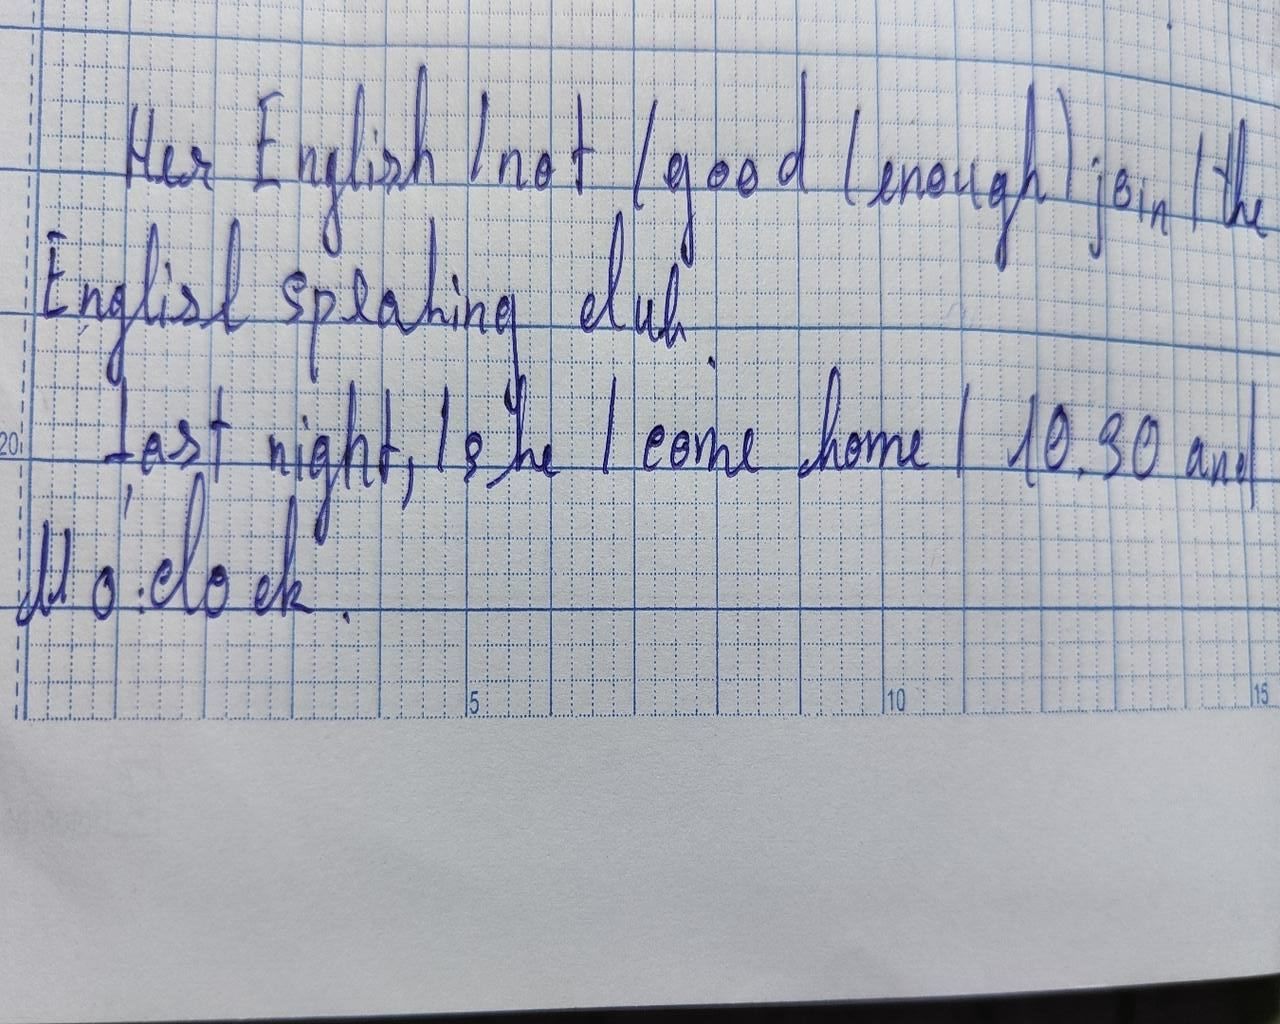 Her English / not / good / enough / join / the
English speaking club.
Last night, / she / come home / 10.30 and
11 o'clock.
20
5 10 15